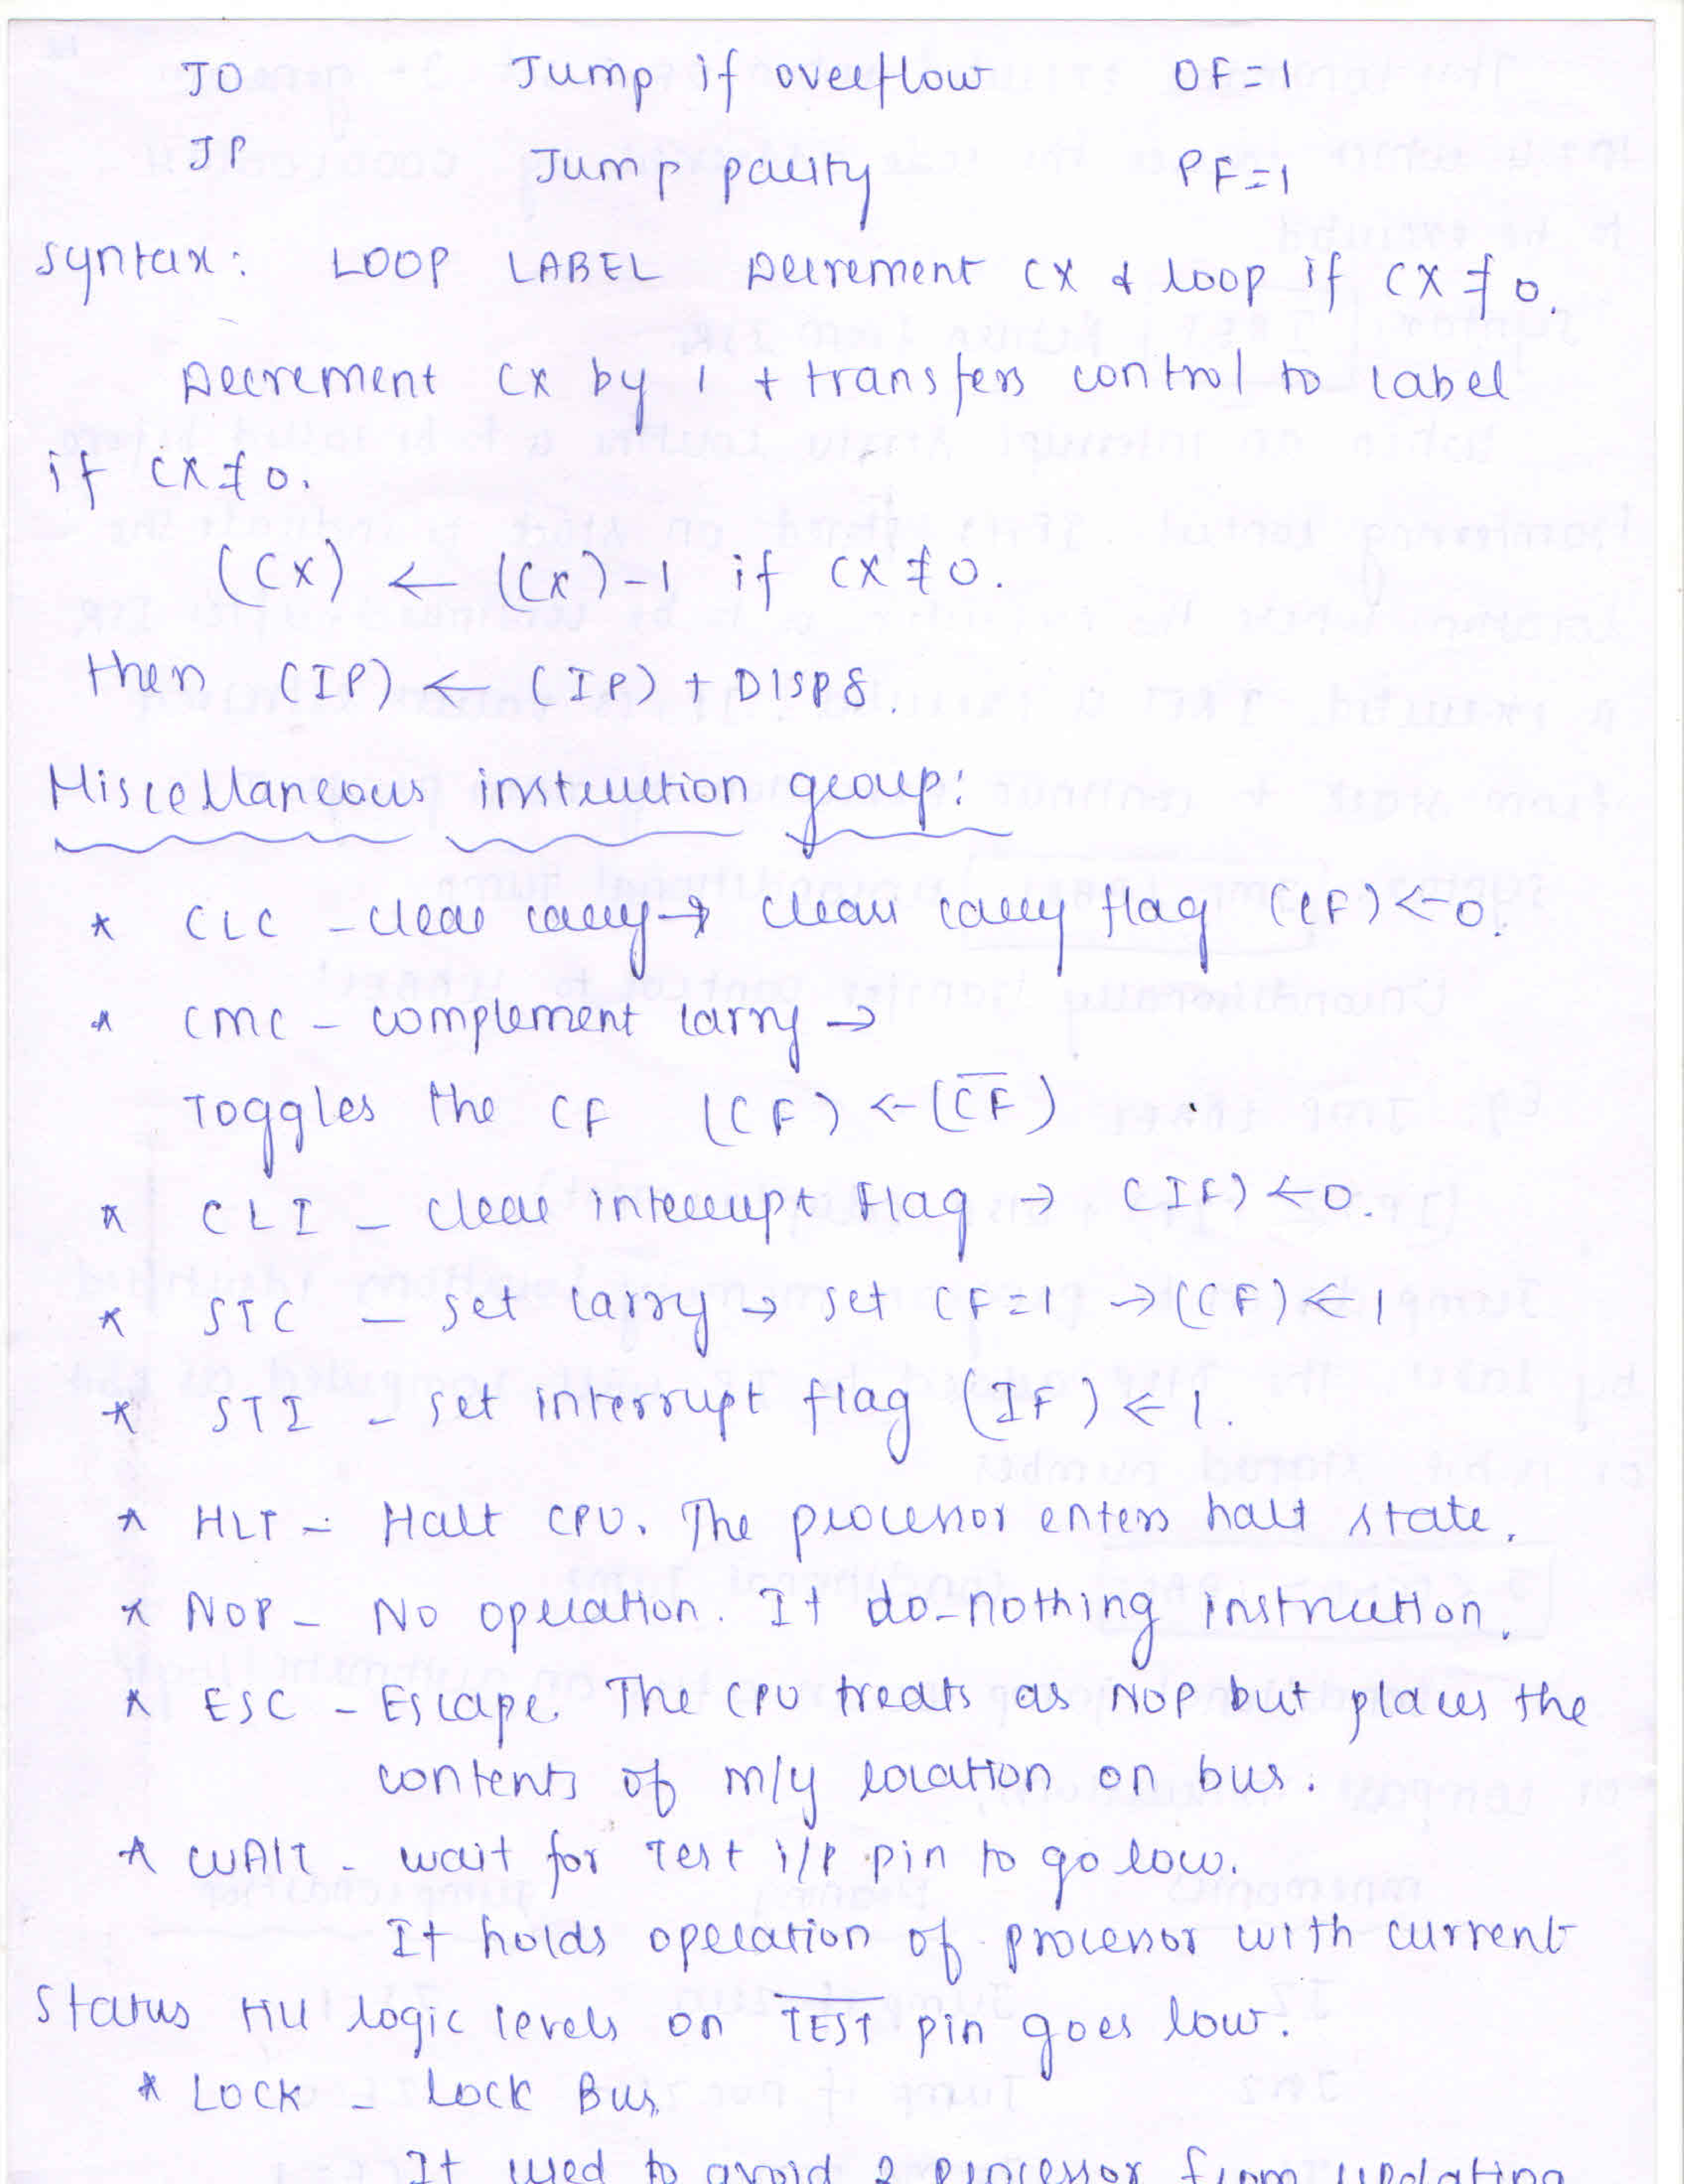 JO Jump if overflow OF=1
JP Jump parity PF=1
Syntax: LOOP LABEL Decrement CX & loop if CX ≠ 0.
Decrement CX by 1 + transfers control to label
if CX ≠ 0.
(CX) ← (CX) - 1 if CX ≠ 0.
then (IP) ← (IP) + DISP8.
Miscellaneous instruction group:
* CLC - clear carry → clear carry flag (CF) ← 0.
* CMC - complement carry →
Toggles the CF (CF) ← (C̅F̅)
* CLI - clear interrupt flag → (IF) ← 0.
* STC - set carry → set CF=1 → (CF) ← 1
* STI - set interrupt flag (IF) ← 1.
* HLT - Halt CPU. The processor enters halt state.
* NOP - No operation. It do-nothing instruction.
* ESC - Escape. The CPU treats as NOP but places the
contents of m/y location on bus.
* WAIT - wait for Test i/p pin to go low.
It holds operation of processor with current
status till logic levels on T̅E̅S̅T̅ pin goes low.
* LOCK - Lock Bus
It used to avoid 2 processor from updating